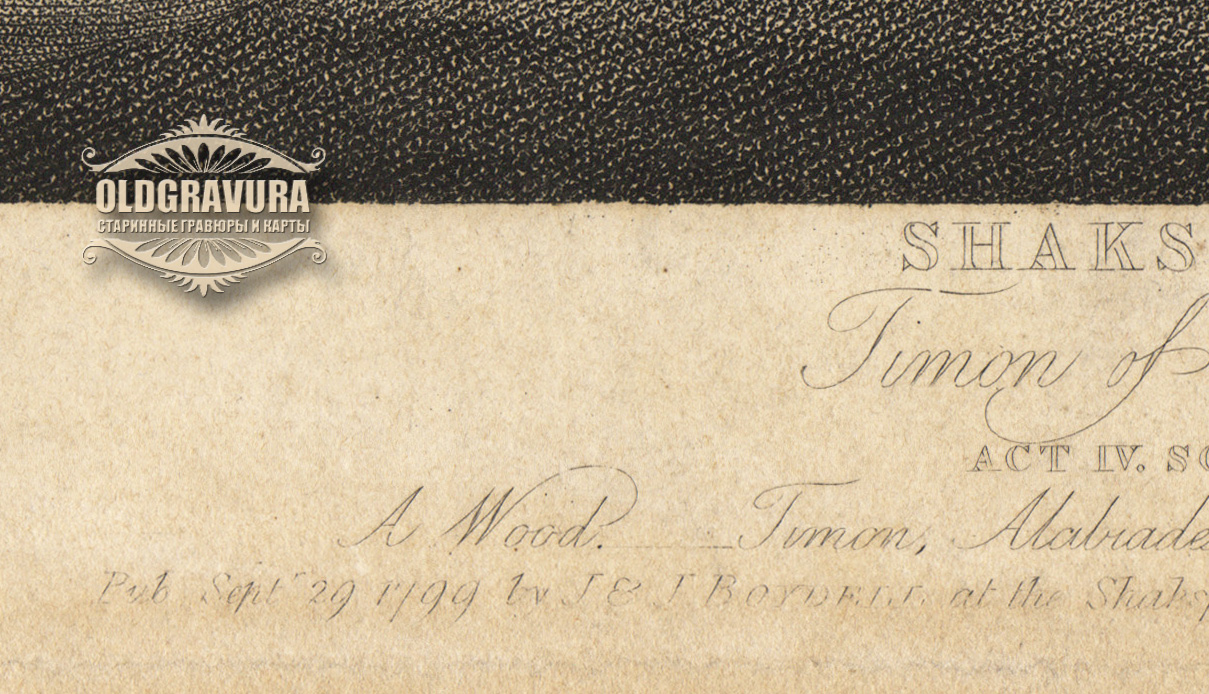 OLDGRAVURA
СТАРИННЫЕ ГРАВЮРЫ И КАРТЫ
SHAKS
Timon of
ACT IV. SC
A Wood. Timon, Alcibiade
Pub Sept.r 29 1799 by J & J BOYDELL at the Shaksp